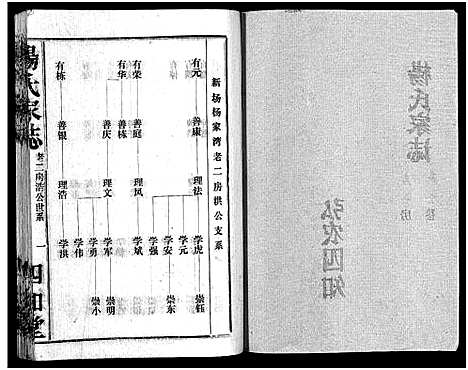 楊氏家誌
弘农四知
新场杨家湾老二房洪公支系
有元 有荣 有华 有栋
善康 善庭 善栋 善庆 善银
理法 理凤 理文 理浩
学虎 学元 学安 学强 学斌 学军 学勇 学伟 学洪
崇钰 崇东 崇明 崇小
楊氏家誌
老二房洪公世系
一
四知堂